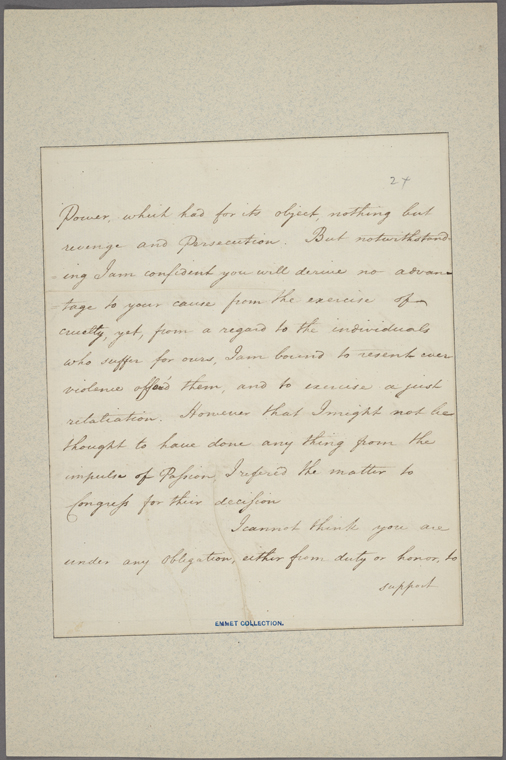 24
Power, which had for its object, nothing but
revenge and Persecution. But notwithstand-
ing I am confident you will derive no advan-
tage to your cause from the exercise of
cruelty, yet, from a regard to the individuals
who suffer for ours, I am bound to resent every
violence offer'd them, and to exercise a just
retaliation. However that I might not be
thought to have done any thing from the
impulse of Passion, I refered the matter to
Congress for their decision
I cannot think you are
under any Obligation, either from duty or honor, to
support
EMMET COLLECTION.